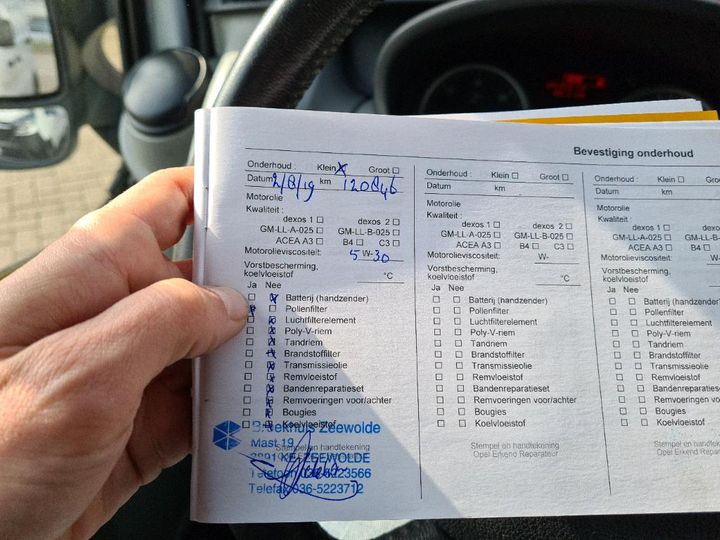 Bevestiging onderhoud
Onderhoud : Klein X Groot
Datum 2/8/19 km 120846
Motorolie
Kwaliteit :
dexos 1 dexos 2
GM-LL-A-025 GM-LL-B-025
ACEA A3 B4 C3
Motorolieviscositeit: 5 W-30
Vorstbescherming,
koelvloeistof °C
Ja Nee
Batterij (handzender)
Pollenfilter
Luchtfilterelement
Poly-V-riem
Tandriem
Brandstoffilter
Transmissieolie
Remvloeistof
Bandenreparatieset
Remvoeringen voor/achter
Bougies
Koelvloeistof
Zeewolde
Mast 19
Stempel en handtekening
ZEEWOLDE
Telefoon 036-5223566
Telefax 036-5223712
Onderhoud : Klein Groot
Datum km
Motorolie
Kwaliteit :
dexos 1 dexos 2
GM-LL-A-025 GM-LL-B-025
ACEA A3 B4 C3
Motorolieviscositeit: W-
Vorstbescherming,
koelvloeistof °C
Ja Nee
Batterij (handzender)
Pollenfilter
Luchtfilterelement
Poly-V-riem
Tandriem
Brandstoffilter
Transmissieolie
Remvloeistof
Bandenreparatieset
Remvoeringen voor/achter
Bougies
Koelvloeistof
Stempel en handtekening
Opel Erkend Reparateur
Onderhoud : Klein
Datum km
Motorolie
Kwaliteit :
dexos 1
GM-LL-A-025
ACEA A3
Motorolieviscositeit:
Vorstbescherming,
koelvloeistof
Ja Nee
Batterij (handzender)
Pollenfilter
Luchtfilterelement
Poly-V-riem
Tandriem
Brandstoffilter
Transmissieolie
Remvloeistof
Bandenreparatieset
Remvoeringen voor/ac
Bougies
Koelvloeistof
Stempel en handteken
Opel Erkend Repara